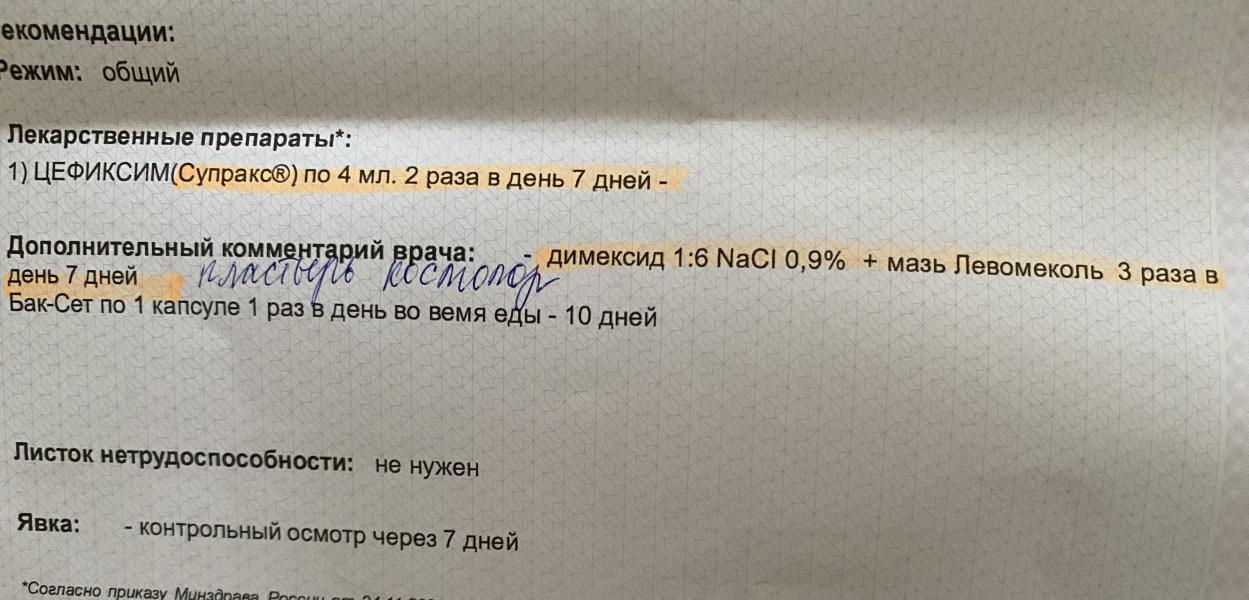 екомендации:
Режим: общий
Лекарственные препараты*:
1) ЦЕФИКСИМ(Супракс®) по 4 мл. 2 раза в день 7 дней -
Дополнительный комментарий врача: - димексид 1:6 NaCl 0,9% + мазь Левомеколь 3 раза в
день 7 дней пластырь космопор
Бак-Сет по 1 капсуле 1 раз в день во вемя еды - 10 дней
Листок нетрудоспособности: не нужен
Явка: - контрольный осмотр через 7 дней
*Согласно приказу Минздрава России от